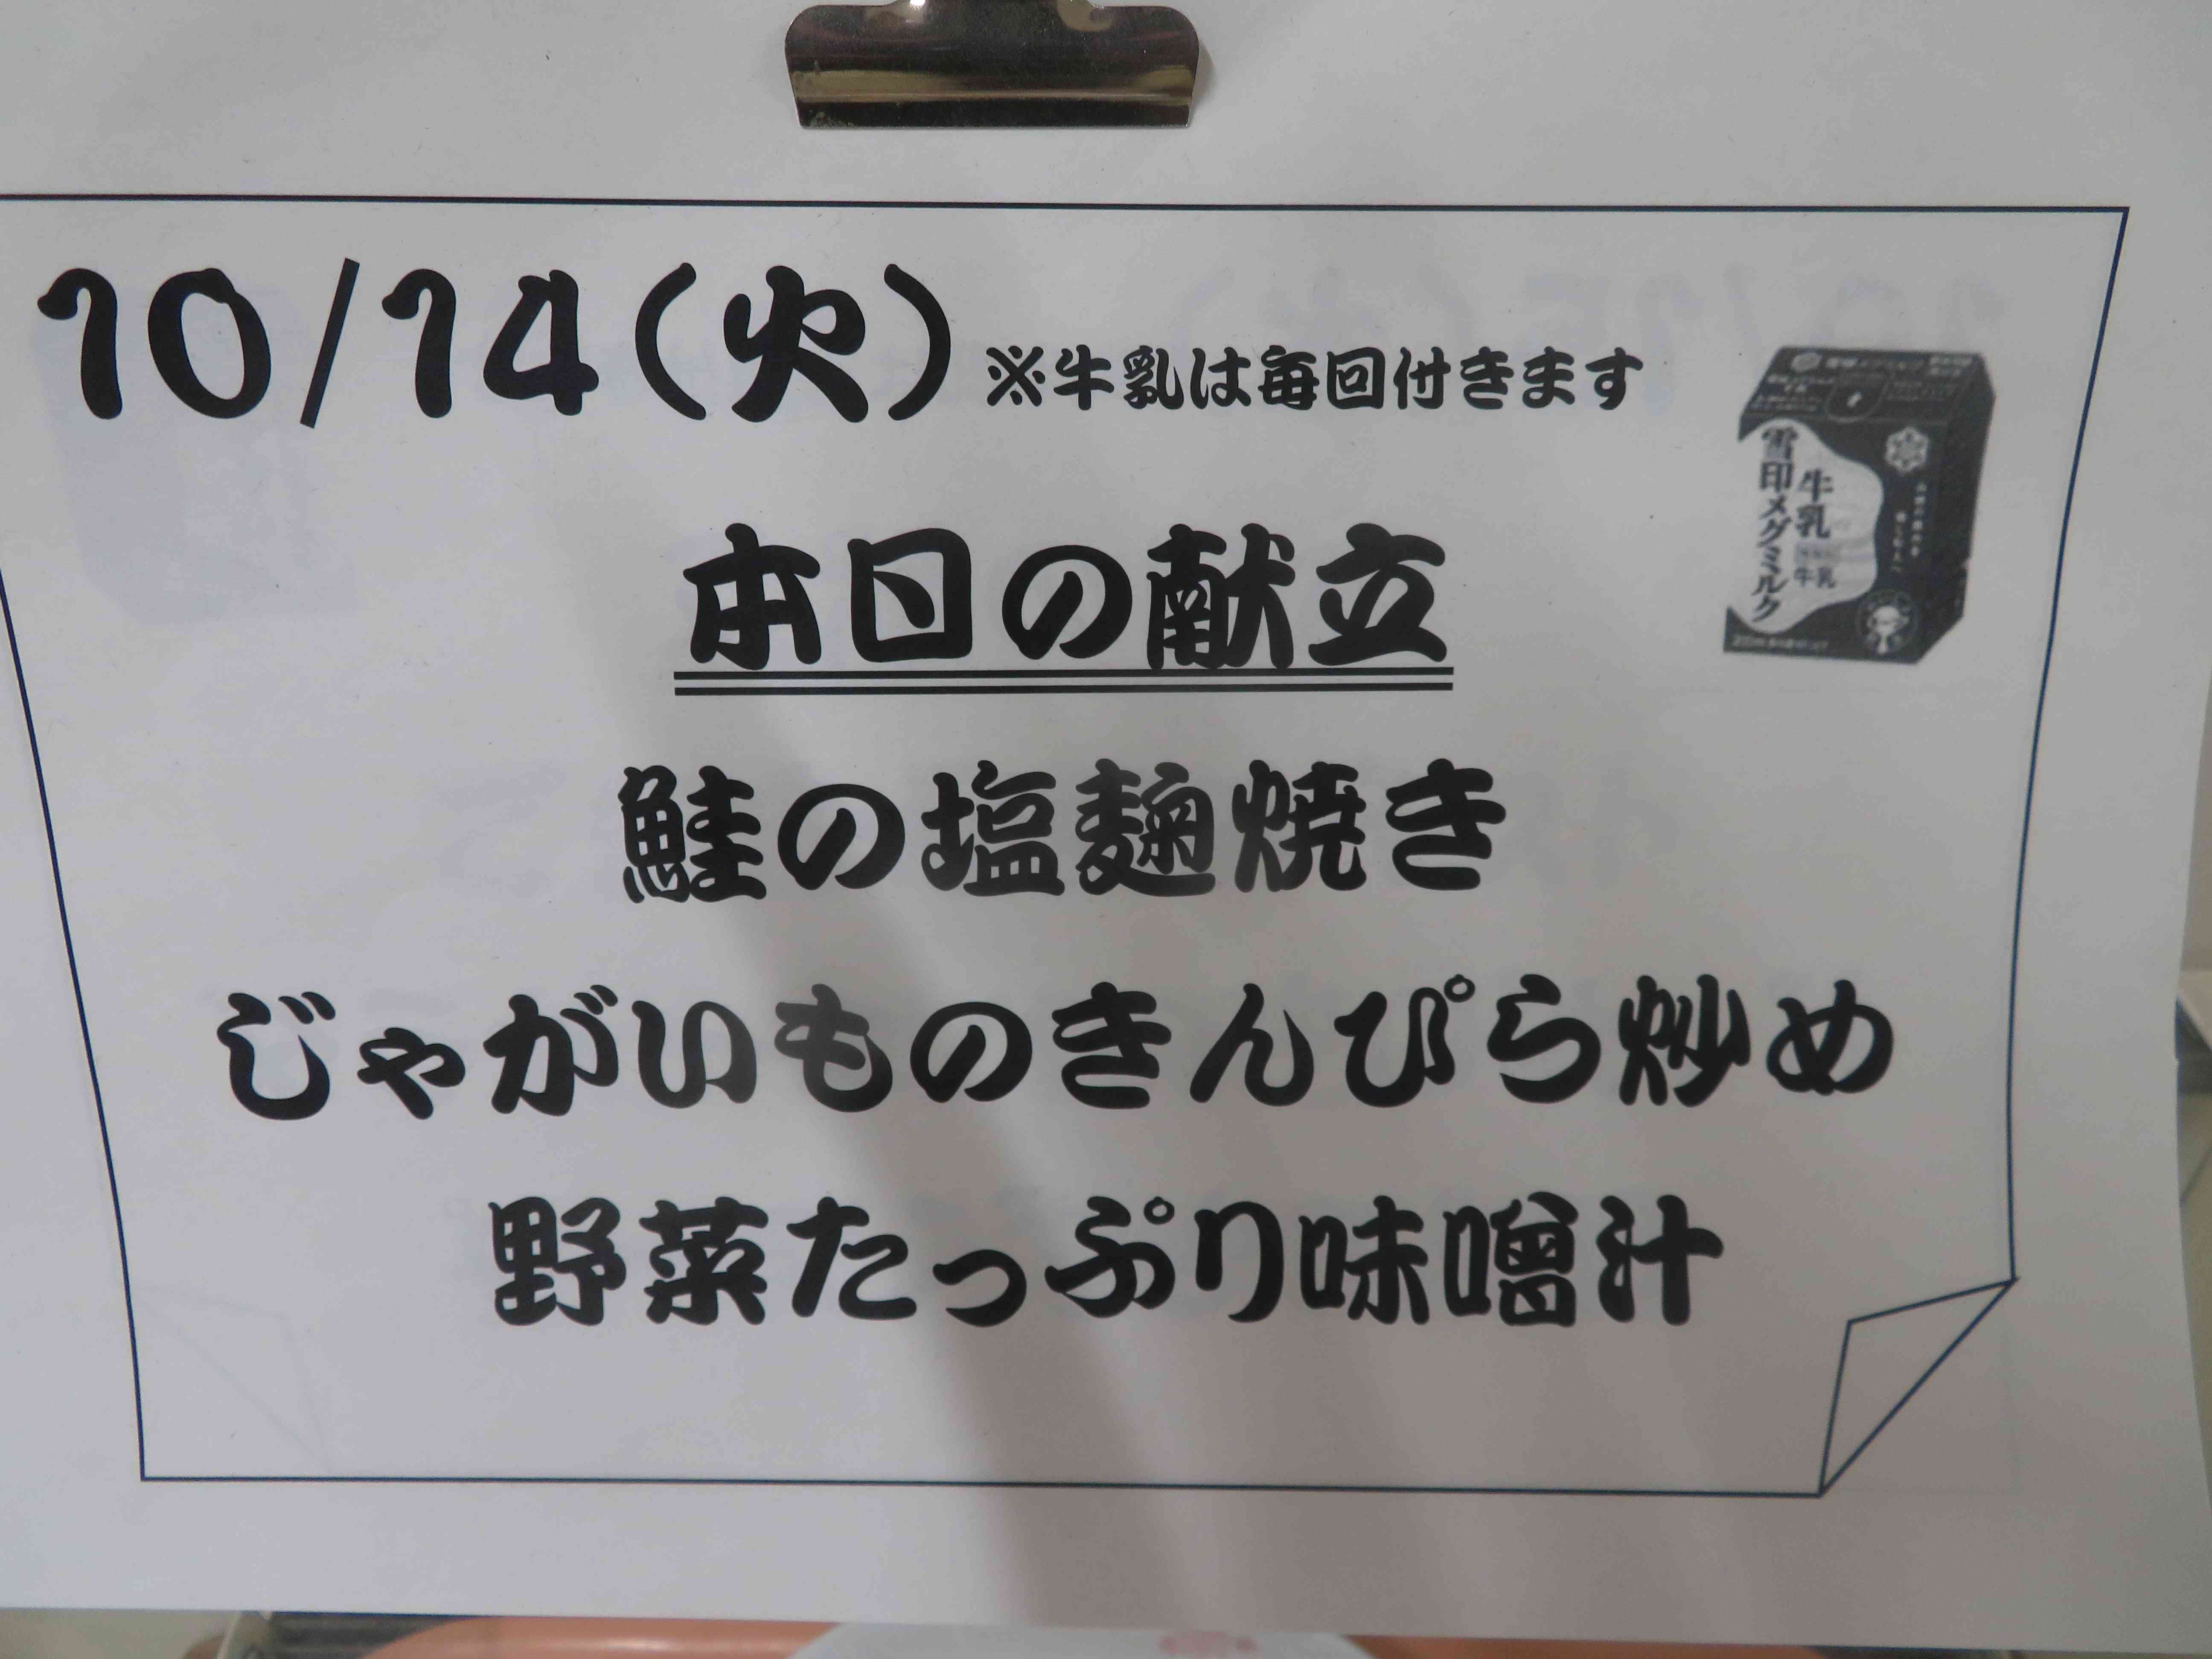 10/14(火) ※牛乳は毎回付きます
雪印メグミルク
牛乳
牛乳
本日の献立
鮭の塩麹焼き
じゃがいものきんぴら炒め
野菜たっぷり味噌汁